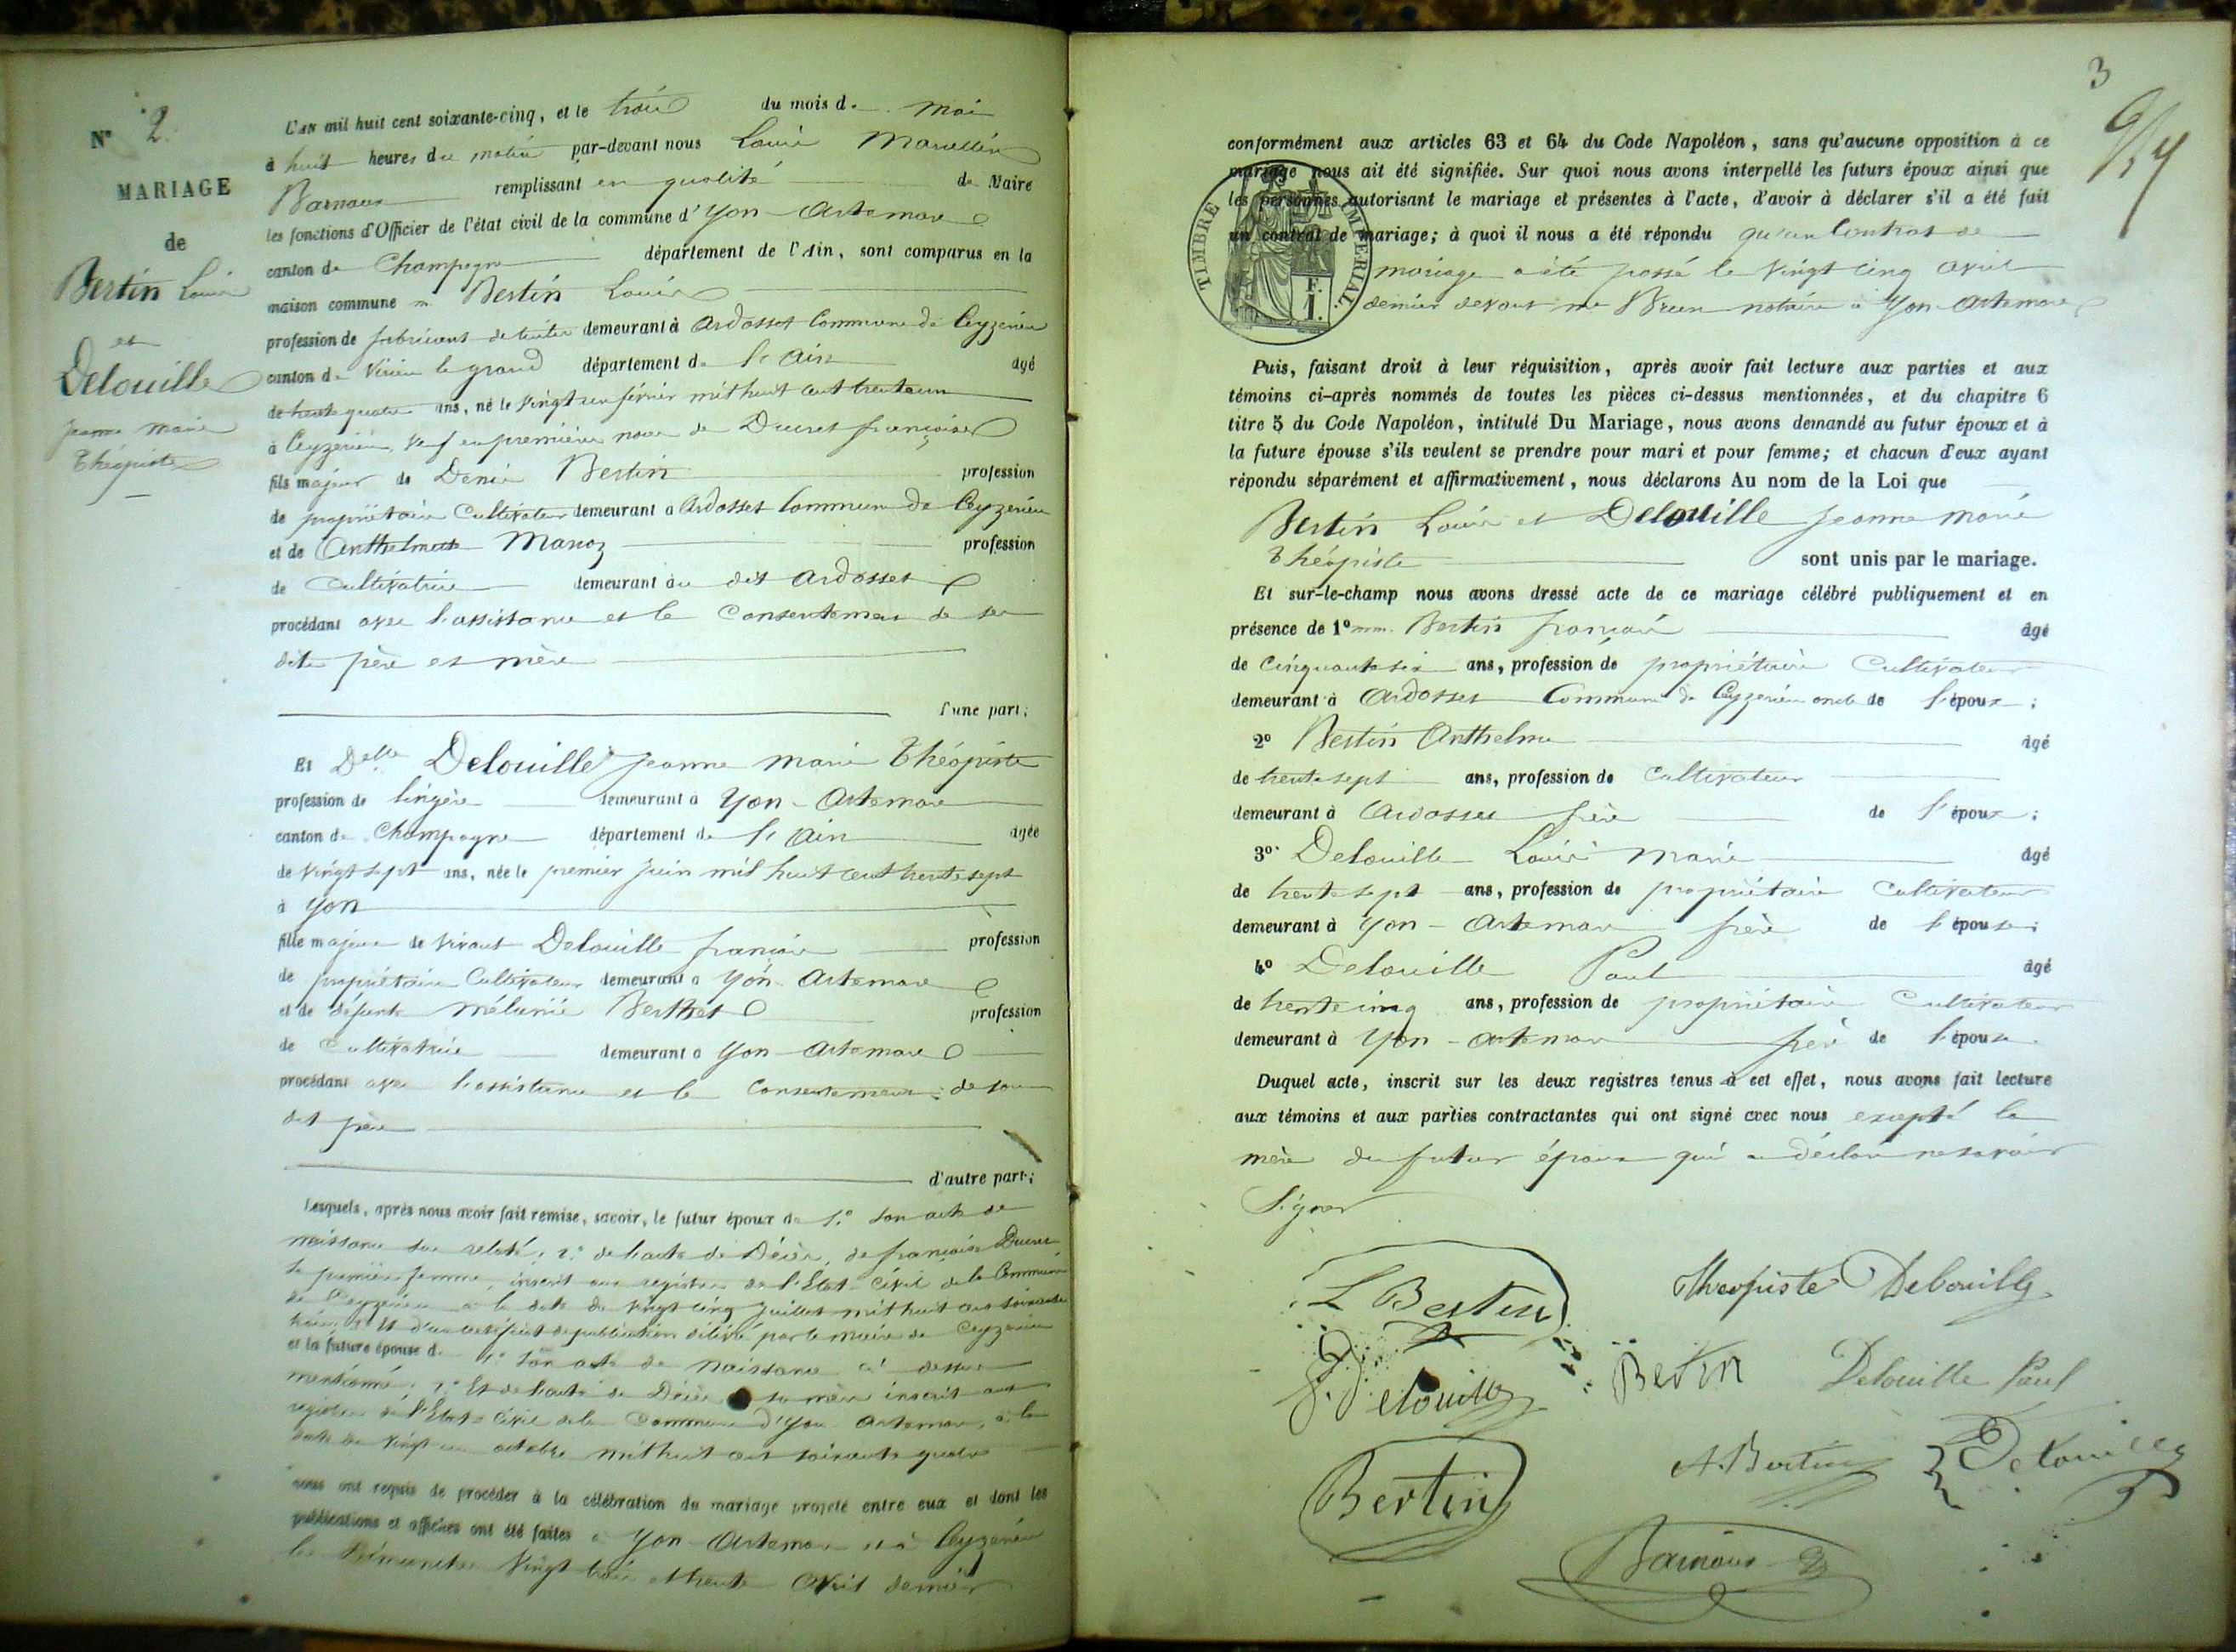 N° 2.
MARIAGE
de
Bertin Louis
et
Delouille
jeanne marie
Théopiste
L'AN mil huit cent soixante-cinq, et le trois du mois de mai
à huit heures du matin par-devant nous Louis Marcellin
Barnaus remplissant en qualité de Maire
les fonctions d'Officier de l'état civil de la commune d'Yon-Artemare
canton de Champagne département de l'Ain, sont comparus en la
maison commune m. Bertin Louis
profession de fabricant de tuiles demeurant à Ardosset Commune de Ceyzerieu
canton de Virieu le grand département de l'Ain âgé
de trente quatre ans, né le vingt un février mil huit cent trente un
à Ceyzerieu, veuf en première noce de Ducret françoise
fils majeur de Denis Bertin profession
de propriétaire Cultivateur demeurant à Ardosset Commune de Ceyzerieu
et de Anthelmette Manoz profession
de Cultivatrice demeurant au dit Ardosset
procédant avec l'assistance et le Consentement de ses
dits père et mère
d'une part;
Et Delle Delouille jeanne marie Théopiste
profession de lingère demeurant à Yon-Artemare
canton de Champagne département de l'Ain âgée
de vingt sept ans, née le premier juin mil huit cent trente sept
à Yon
fille majeure de vivant Delouille françois profession
de propriétaire Cultivateur demeurant à Yon-Artemare
et de défunte mélanie Berthet profession
de Cultivatrice demeurant à Yon-Artemare
procédant avec l'assistance et le Consentement de son
dit père
d'autre part;
Lesquels, après nous avoir fait remise, savoir, le futur époux de 1.° Son acte de
naissance sus relaté; 2.° de l'acte de Décès de françoise Ducret
sa première femme, inscrit aux registres de l'État-Civil de la Commune
de Ceyzerieu à la date du vingt cinq juillet mil huit cent soixante
trois; 3° Et d'un certificat de publication délivré par le maire de Ceyzerieu
et la future épouse de 1° Son acte de naissance ci dessus
mentionné; 2.° Et de l'acte de Décès sa mère inscrit aux
registres de l'État-Civil de la Commune d'Yon Artemare, à la
date du vingt un octobre mil huit cent soixante quatre
nous ont requis de procéder à la célébration du mariage projeté entre eux et dont les
publications et affiches ont été faites à Yon-Artemare et à Ceyzerieu
les Dimanches vingt trois et trente Avril dernier
3
conformément aux articles 63 et 64 du Code Napoléon, sans qu'aucune opposition à ce
mariage nous ait été signifiée. Sur quoi nous avons interpellé les futurs époux ainsi que
les personnes autorisant le mariage et présentes à l'acte, d'avoir à déclarer s'il a été fait
un contrat de mariage; à quoi il nous a été répondu qu'un Contrat de
mariage a été passé le vingt cinq avril
dernier devant me Brun notaire à Yon-Artemare
TIMBRE IMPERIAL
F.
1.
Puis, faisant droit à leur réquisition, après avoir fait lecture aux parties et aux
témoins ci-après nommés de toutes les pièces ci-dessus mentionnées, et du chapitre 6
titre 5 du Code Napoléon, intitulé Du Mariage, nous avons demandé au futur époux et à
la future épouse s'ils veulent se prendre pour mari et pour femme; et chacun d'eux ayant
répondu séparément et affirmativement, nous déclarons Au nom de la Loi que
Bertin Louis et Delouille jeanne marie
Théopiste sont unis par le mariage.
Et sur-le-champ nous avons dressé acte de ce mariage célébré publiquement et en
présence de 1° mm. Bertin françois âgé
de Cinquante six ans, profession de propriétaire Cultivateur
demeurant à Ardosset Commune de Ceyzerieu oncle de l'époux;
2° Bertin Anthelme âgé
de trente sept ans, profession de Cultivateur
demeurant à Ardosset frère de l'époux;
3° Delouille Louis marie âgé
de trente sept ans, profession de propriétaire Cultivateur
demeurant à Yon-Artemare frère de l'épouse;
4° Delouille Paul âgé
de trente cinq ans, profession de propriétaire Cultivateur
demeurant à Yon-artemare frère de l'épouse.
Duquel acte, inscrit sur les deux registres tenus à cet effet, nous avons fait lecture
aux témoins et aux parties contractantes qui ont signé avec nous excepté la
mère du futur époux qui a déclaré ne savoir
Signer
L Bertin
Théopiste Delouille
J. Delouille
Bertin
Delouille Paul
Bertin
A. Bertin
Delouille
Barnaus